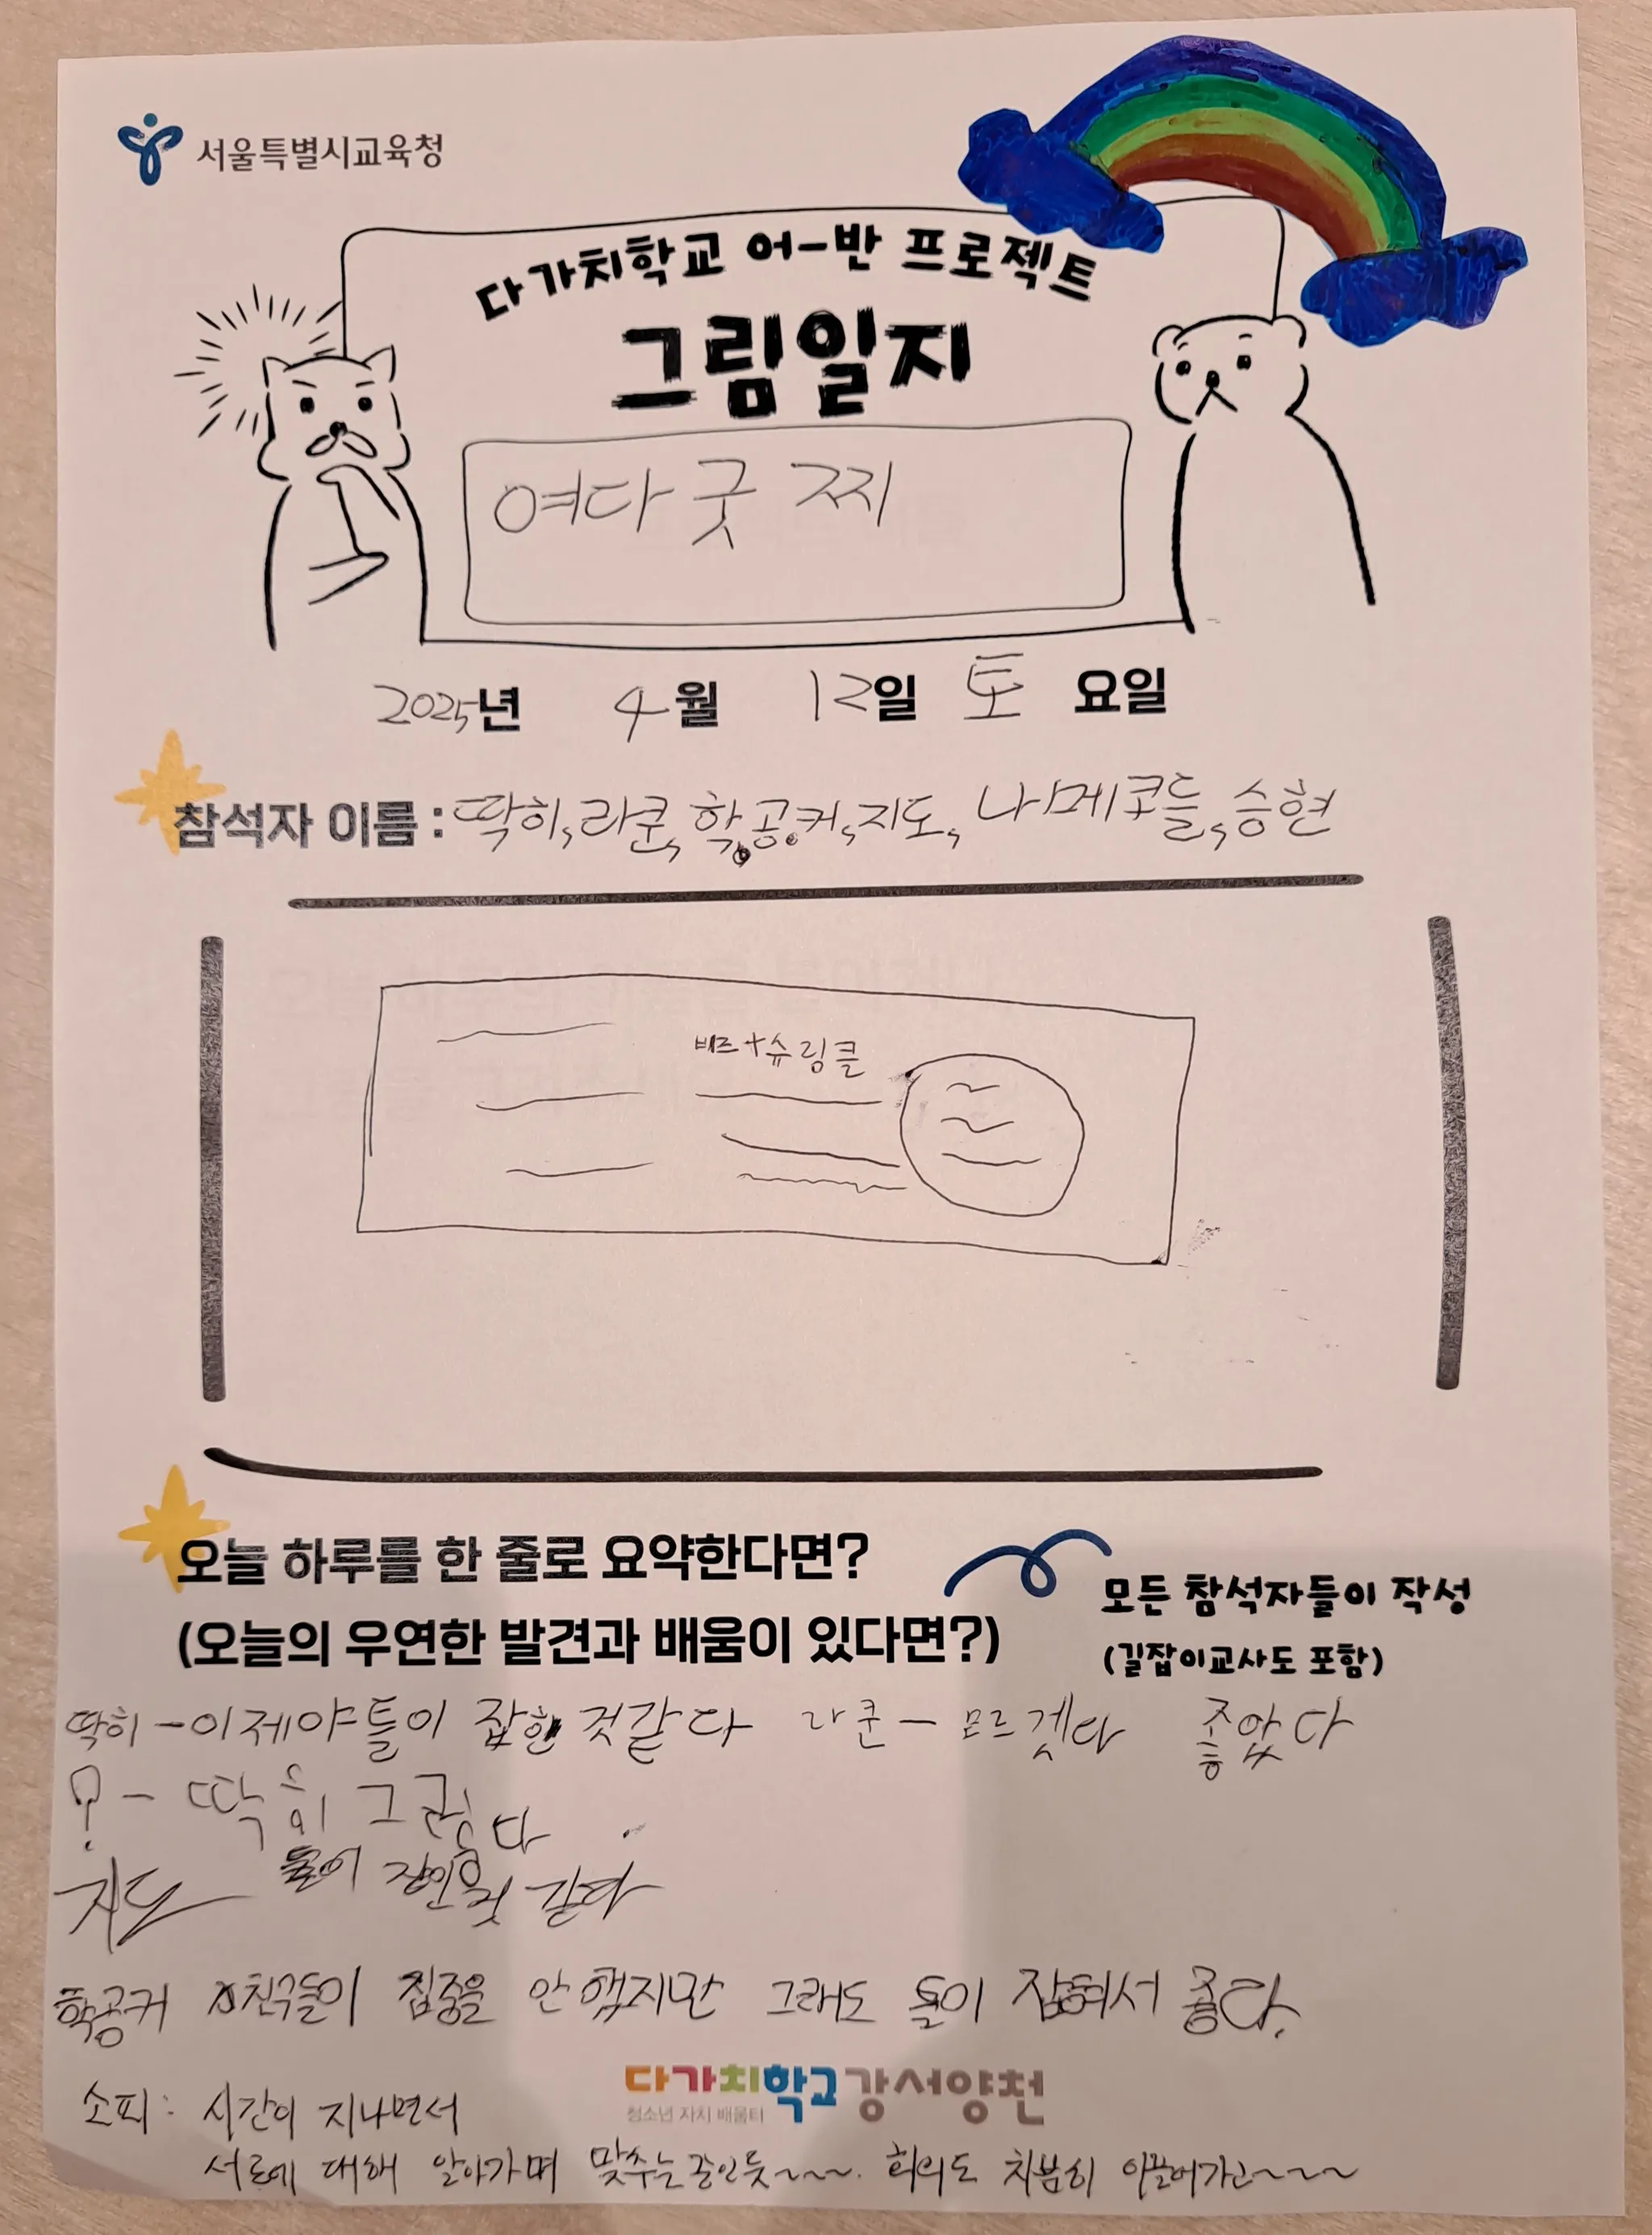 서울특별시교육청
다가치학교 어-반 프로젝트
그림일지
여다굿찌
2025년 4월 12일 토요일
참석자 이름 : 딱히, 라쿤, 학공커, 지도, 나메코들, 승현
비즈+슈링클
오늘 하루를 한 줄로 요약한다면?
(오늘의 우연한 발견과 배움이 있다면?)
모든 참석자들이 작성
(길잡이교사도 포함)
딱히 - 이제야 틀이 잡힌 것 같다 라쿤 - 모르겠다 좋았다
딱히
지도 같다
학공커 친구들이 집중을 안 했지만 그래도 틀이 잡혀서 좋다.
소피 : 시간이 지나면서
서로에 대해 알아가며 맞추는 중인듯~~~. 회의도 차분히 이끌어가고~~~
다가치학교 강서양천
청소년 자치 배움터